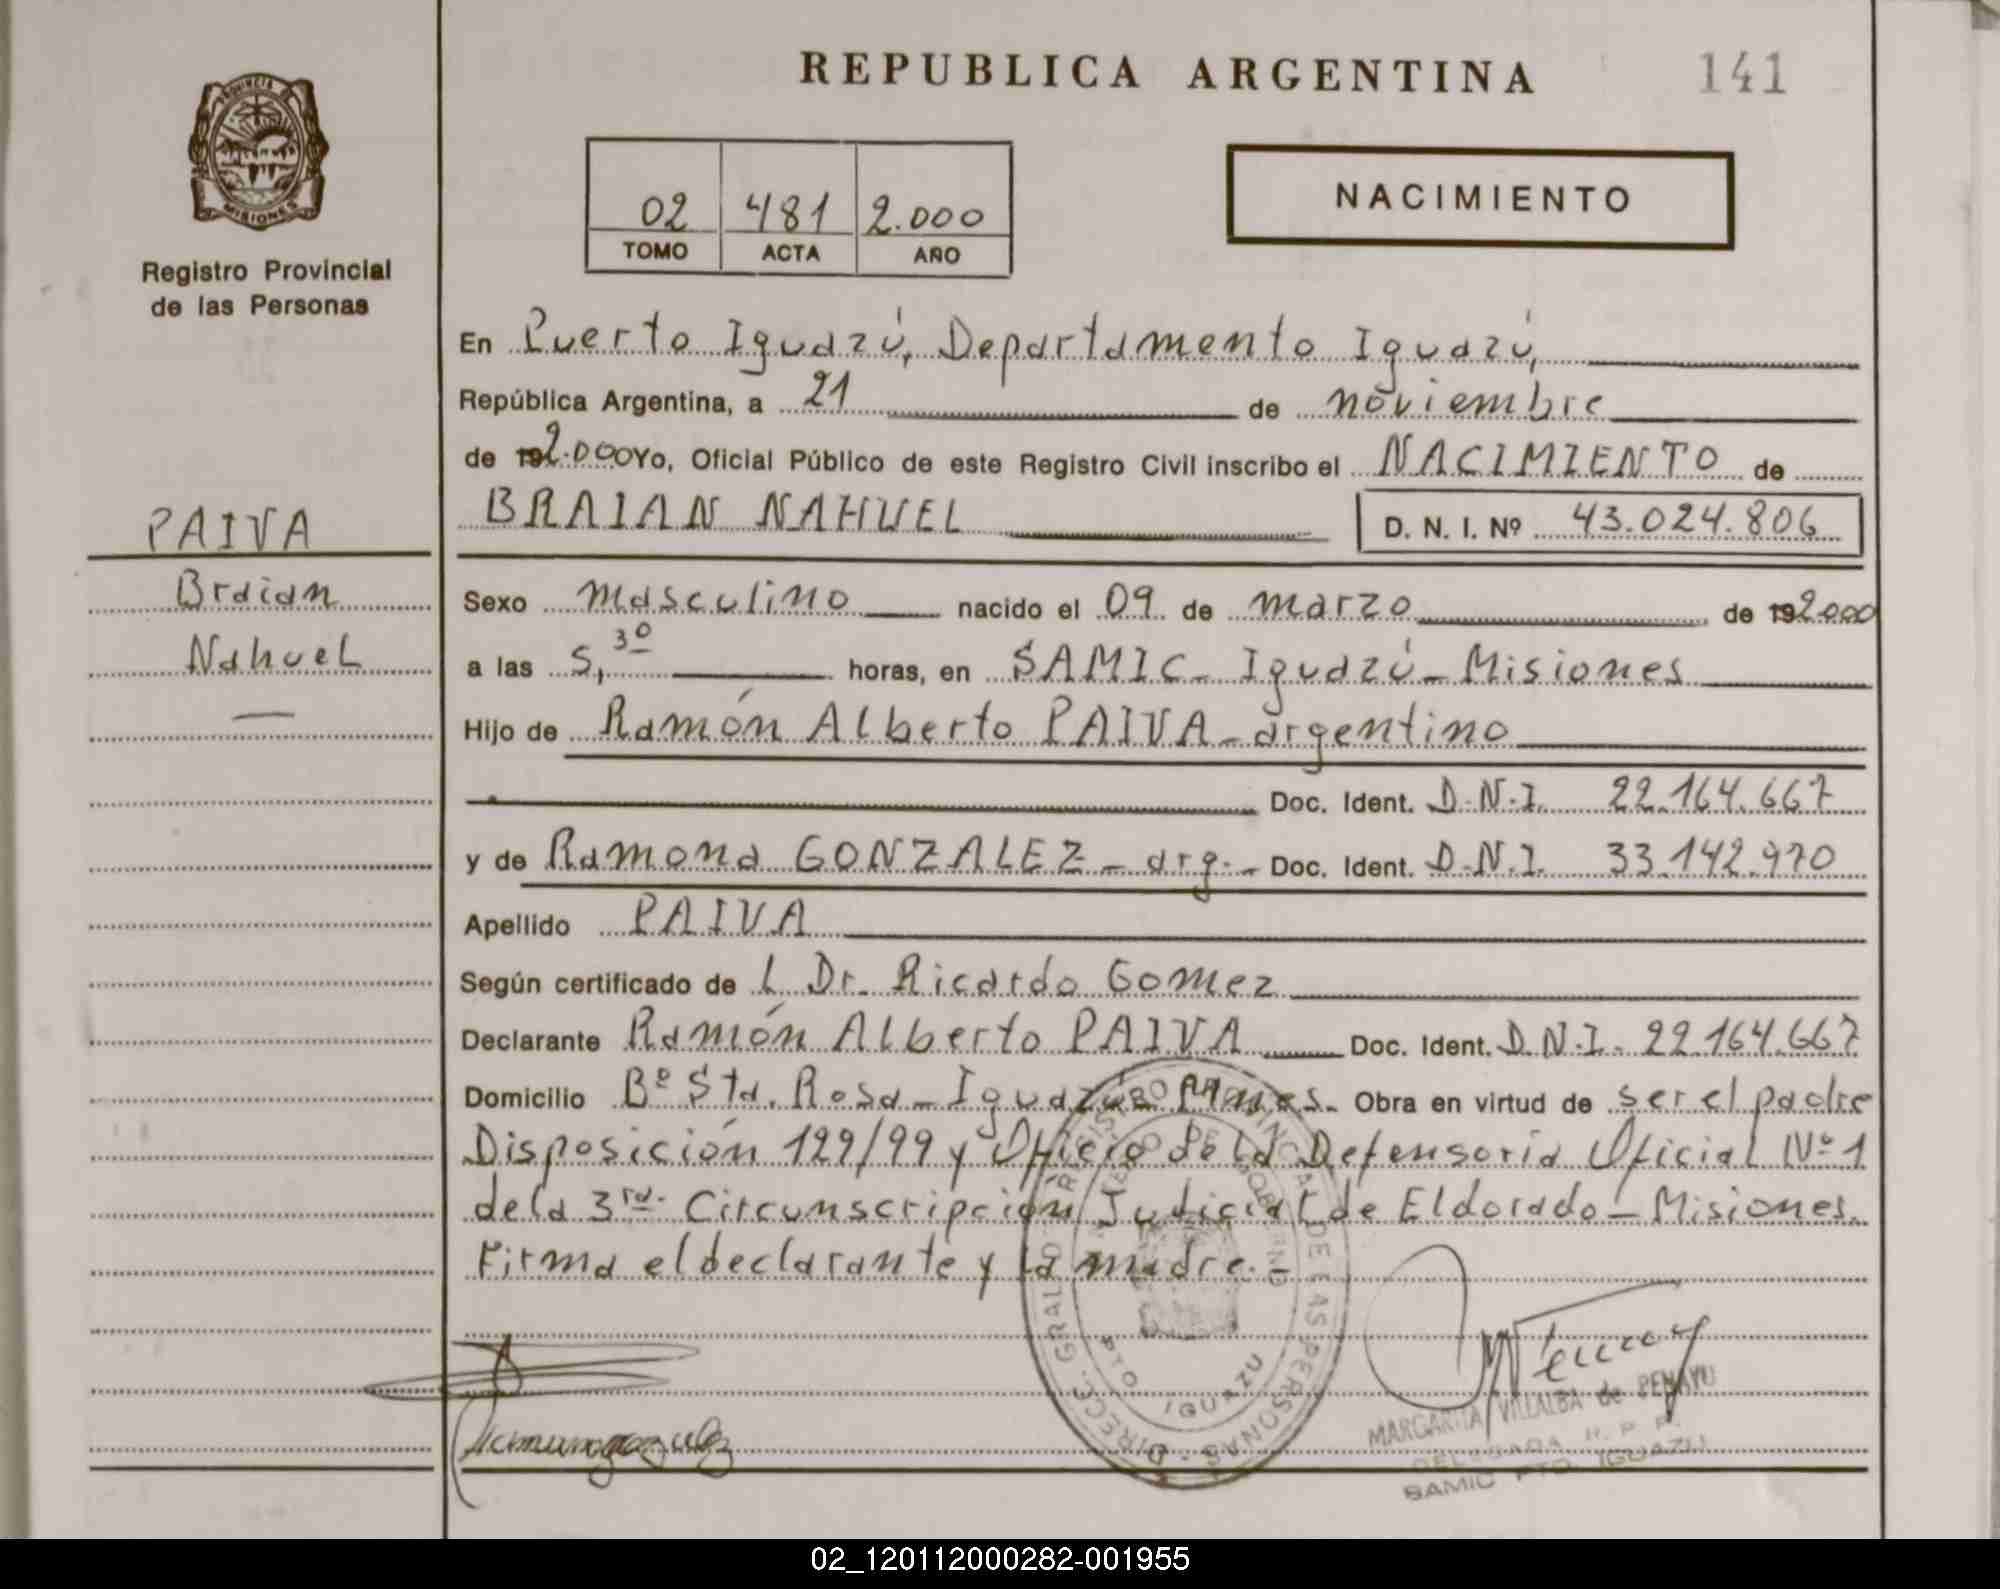 REPUBLICA ARGENTINA
141
PROVINCIA DE
MISIONES
Registro Provincial
de las Personas
02 481 2.000
TOMO ACTA AÑO
NACIMIENTO
En Puerto Iguazú, Departamento Iguazú,
República Argentina, a 21 de noviembre
de 192.000 Yo, Oficial Público de este Registro Civil inscribo el NACIMIENTO de
BRAIAN NAHUEL D. N. I. Nº 43.024.806
PAIVA
Braian
Nahuel
Sexo masculino nacido el 09 de marzo de 192.000
a las 5,30 horas, en SAMIC - Iguazú - Misiones
Hijo de Ramón Alberto PAIVA - argentino
Doc. Ident. D.N.I. 22.164.667
y de Ramona GONZALEZ - arg. - Doc. Ident. D.N.I. 33.142.970
Apellido PAIVA
Según certificado de L Dr. Ricardo Gomez
Declarante Ramón Alberto PAIVA Doc. Ident. D.N.I. 22.164.667
Domicilio Bº Sta. Rosa - Iguazú - Mnes. Obra en virtud de ser el padre
Disposición 129/99 y Oficio de la Defensoría Oficial Nº 1
de la 3ra. Circunscripción Judicial de Eldorado - Misiones.
Firma el declarante y la madre. -
DIRECC. GRAL. REGISTRO PROVINCIAL DE LAS PERSONAS
DE GOBIERNO
PTO IGUAZU
MARGARITA VILLALBA de PENAYU
DELEGADA R. P. P.
SAMIC PTO. IGUAZU
02_120112000282-001955